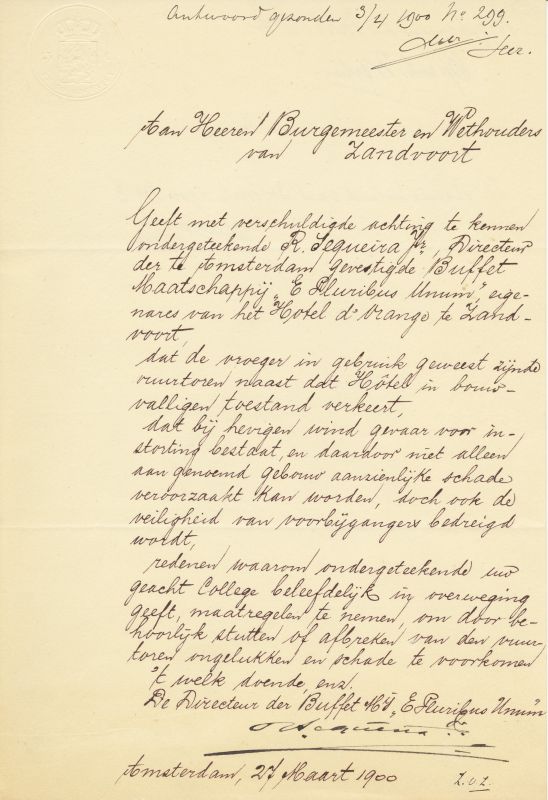 Antwoord gezonden 3/4 1900 No 299.
Aan Heeren Burgemeester en Wethouders
van Zandvoort
Geeft met verschuldigde achting te kennen
ondergeteekende R. Sequeira Jr, Directeur
der te Amsterdam gevestigde Buffet
Maatschappij „E Pluribus Unum", eige-
nares van het Hotel d'Orange te Zand-
voort,
dat de vroeger in gebruik geweest zijnde
vuurtoren naast dat Hôtel in bouw-
valligen toestand verkeert,
dat bij hevigen wind gevaar voor in-
storting bestaat, en daardoor niet alleen
aan genoemd gebouw aanzienlijke schade
veroorzaakt kan worden, doch ook de
veiligheid van voorbijgangers bedreigd
wordt,
redenen waarom ondergeteekende uw
geacht College beleefdelijk in overweging
geeft, maatregelen te nemen, om door be-
hoorlijk stutten of afbreken van den vuur-
toren ongelukken en schade te voorkomen
't welk doende, enz.
De Directeur der Buffet Mij „E Pluribus Unum"
R Sequeira Jr
Amsterdam, 27 Maart 1900
Z.O.Z.